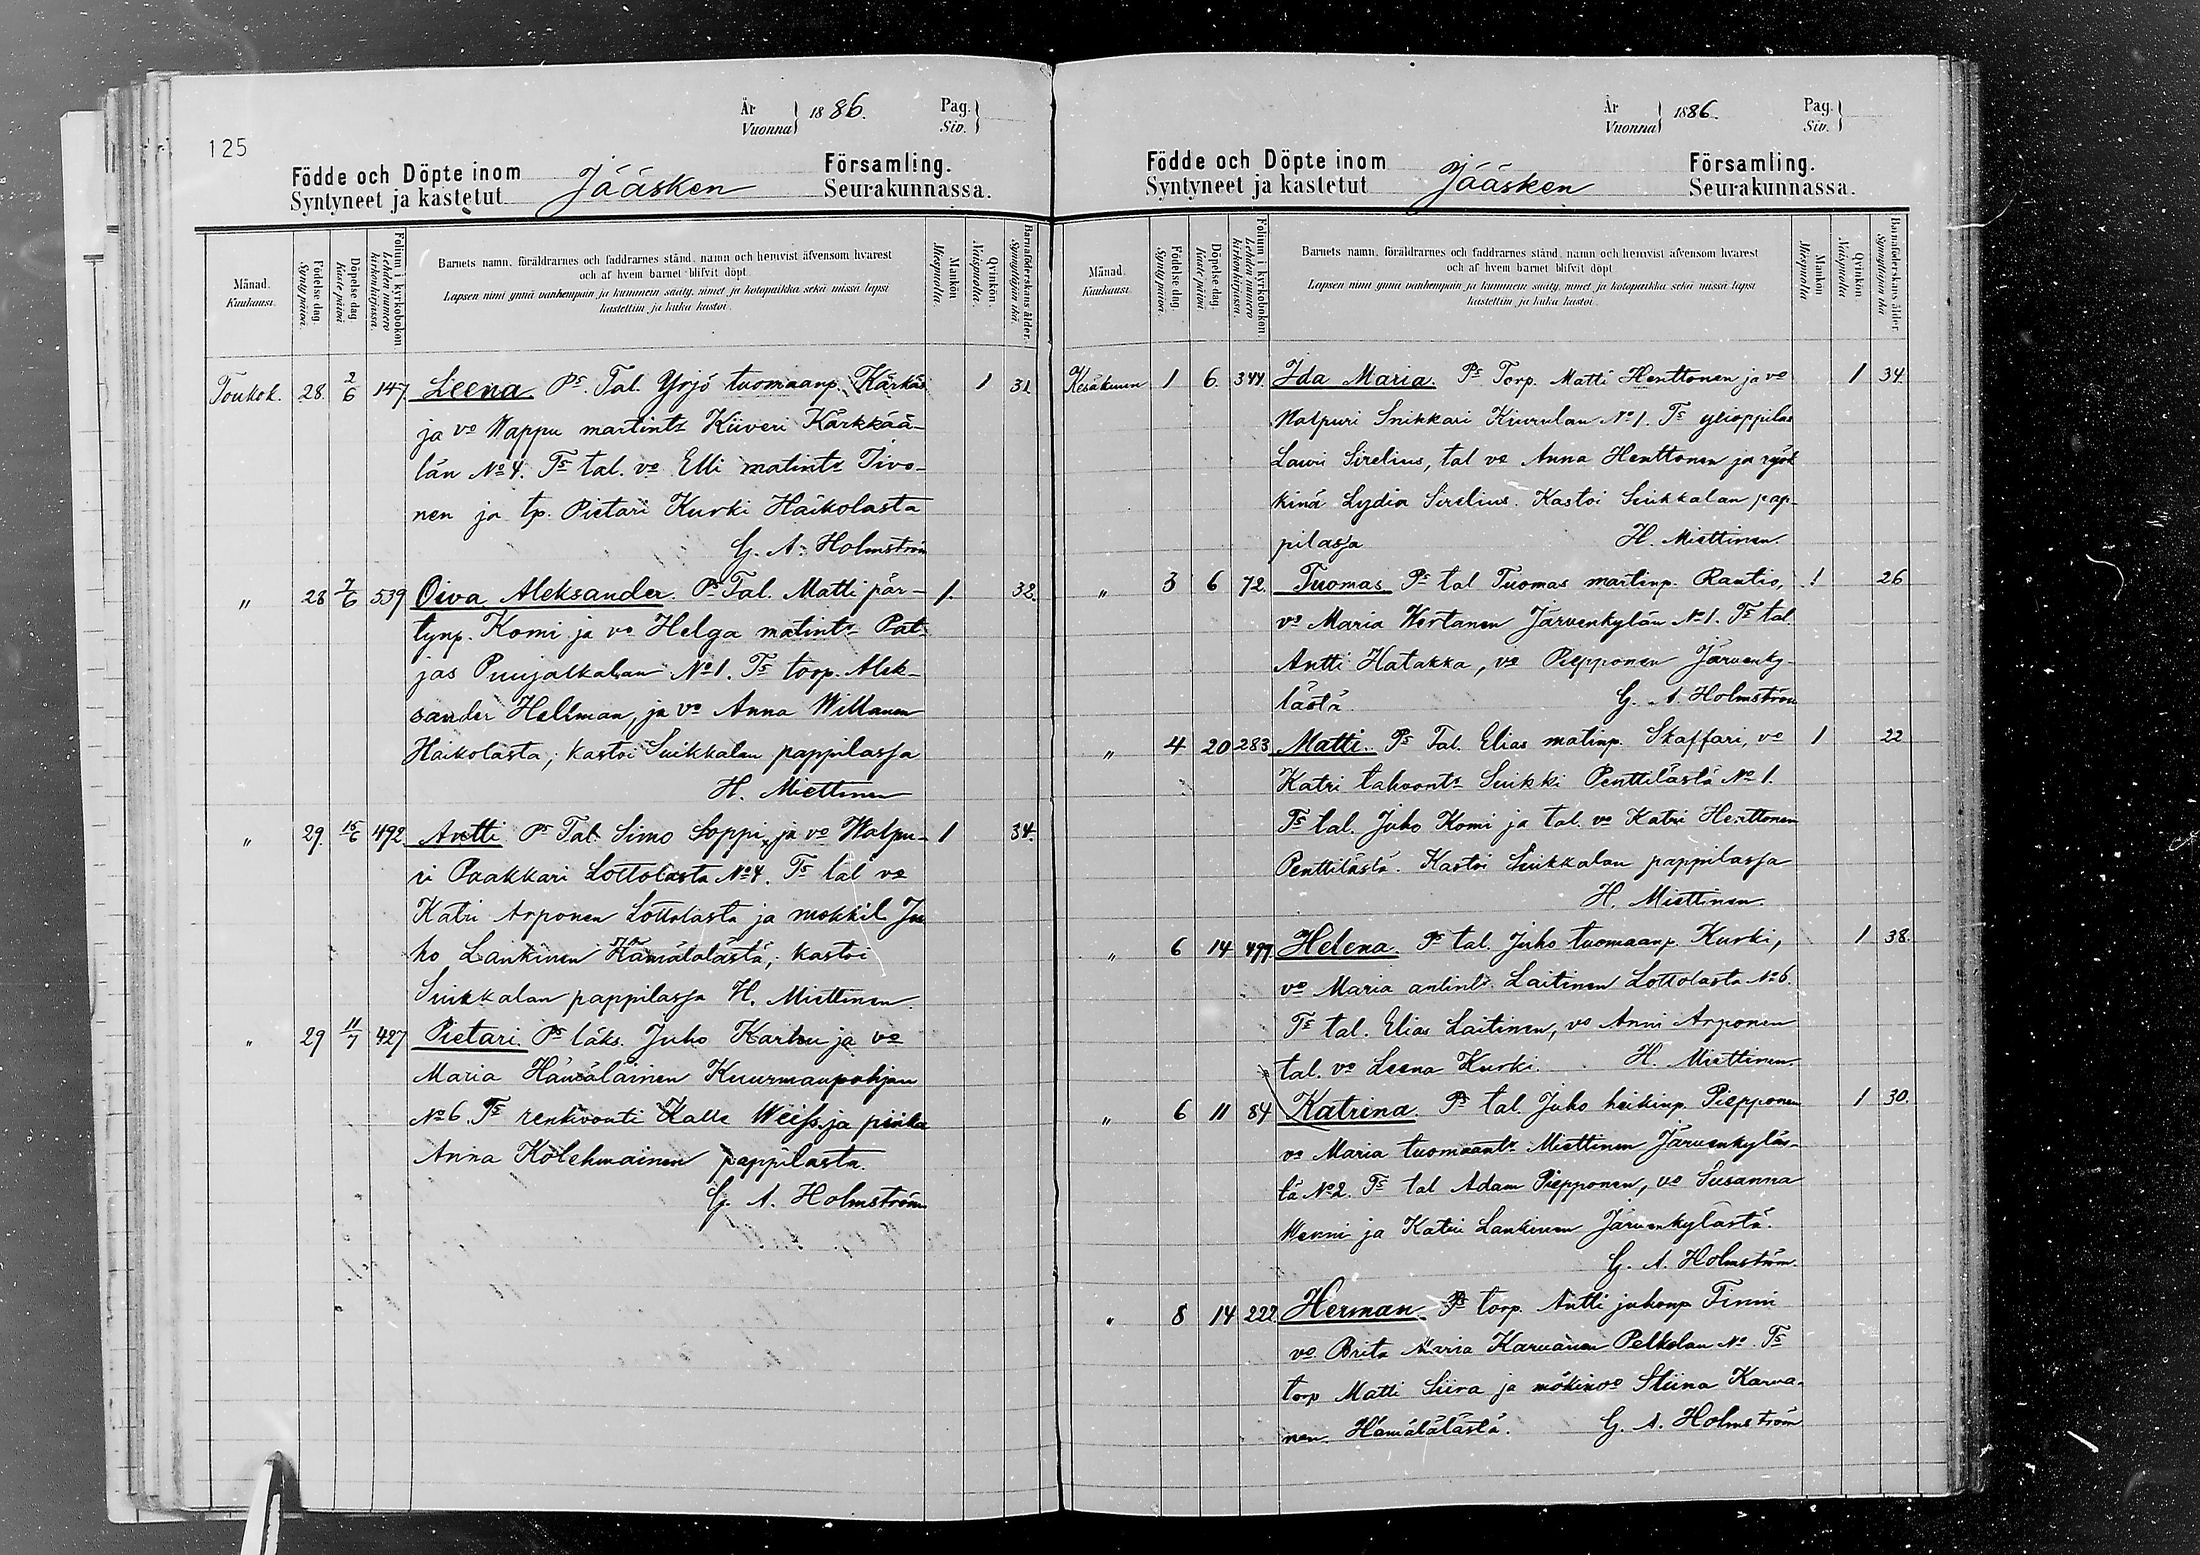 125
År
Vuonna } 1886.
Pag.
Siv. }
Födde och Döpte inom
Syntyneet ja kastetut
Jääsken
Församling.
Seurakunnassa.
Månad.
Kuukausi.
Födelse dag.
Synty päivä.
Döpelse dag
Kaste päivä
Folium i kyrkobokon.
Lehden numero kirkonkirjassa.
Barnets namn, föräldrarnes och faddrarnes stånd, namn och hemvist äfvensom hvarest
och af hvem barnet blifvit döpt.
Lapsen nimi ynnä vanhempain ja kummein sääty, nimet ja kotopaikka sekä missä lapsi
kastettiin ja kuka kastoi.
Mankön.
Miespuolia.
Qvinkön.
Naispuolia.
Barnaföderskans ålder.
Synnyttäjän ikä.
Toukok. 28. 2/6 147 Leena. Ps. Tal. Yrjö tuomaanp. Kärkäs 1 31
ja vo Wappu martintr Kiiveri Kärkkää-
län No 4. Ts tal. vo Elli matintr Tivo-
nen ja tp. Pietari Kurki Häikolasta
G. A. Holmström
" 28 7/6 539 Oiva Aleksander. Ps Tal. Matti pär- 1. 32.
tynp. Komi ja vo Helga matintr Pat-
jas Puujalkalan No 1. Ts torp. Alek-
sander Hellman, ja vo Anna Willanen
Haikolasta; kastoi Suikkalan pappilassa
H. Miettinen
" 29. 15/6 492 Antti Ps Tal. Simo Soppi ja vo Walpu- 1 34.
ri Paakkari Lottolasta No 4. Ts tal vo
Katri Arponen Lottolasta ja mökkil. Ju
ho Lankinen Hämälälästä; kastoi
Suikkalan pappilassa H. Miettinen
" 29 11/7 427 Pietari. Ps läks. Juho Karhu ja vo
Maria Hämäläinen Kuurmanpohjan
No 6. Ts renkivouti Kalle Weiss ja piika
Anna Kolehmainen pappilasta.
G. A. Holmström
År
Vuonna } 1886.
Pag.
Siv. }
Födde och Döpte inom
Syntyneet ja kastetut
Jääsken
Församling.
Seurakunnassa.
Månad.
Kuukausi.
Födelse dag.
Synty päivä.
Döpelse dag.
Kaste päivä
Folium i kyrkobokon.
Lehden numero kirkonkirjassa.
Barnets namn, föräldrarnes och faddrarnes stånd, namn och hemvist äfvensom hvarest
och af hvem barnet blifvit döpt.
Lapsen nimi ynnä vanhempain ja kummein sääty, nimet ja kotopaikka sekä missä lapsi
kastettiin ja kuka kastoi.
Mankön
Miespuolia
Qvinkön
Naispuolia
Barnaföderskans ålder
Synnyttäjän ikä
Kesäkuun 1 6 344 Ida Maria. Ps Torp. Matti Henttonen ja vo 1 34.
Walpuri Snikkari Kiurulan No 1. Ts ylioppilas
Lauri Sirelius, tal vo Anna Henttonen ja ryök
kinä Lydia Sirelius. Kastoi Suikkalan pap-
pilassa H. Miettinen.
" 3 6 72. Tuomas Ps tal Tuomas martinp. Rautio, 1 26
vo Maria Wertanen Järvenkylän No 1. Ts tal.
Antti Hatakka, vo Piepponen Järvenky-
lästä. G. A. Holmström
" 4 20 283 Matti. Ps Tal. Elias matinp. Skaffari, vo 1 22
Katri tahvontr Suikki Penttilästä No 1.
Ts tal. Juho Komi ja tal. vo Katri Henttonen
Penttilästä. Kastoi Suikkalan pappilassa
H. Miettinen.
" 6 14 499 Helena. Ps tal. Juho tuomaanp. Kurki, 1 38.
vo Maria antintr. Laitinen Lottolasta No 6.
Ts tal. Elias Laitinen, vo Anni Arponen
tal. vo Leena Kurki. H. Miettinen.
" 6 11 84 Katrina. Ps tal. Juho heikinp. Piepponen 1 30.
vo Maria tuomaantr Miettinen Järvenkyläs-
tä No 2. Ts tal Adam Piepponen, vo Susanna
Wenni ja Katri Lankinen Järvenkylästä.
G. A. Holmström.
" 8 14 222 Herman. Ps torp. Antti juhonp Tinni
vo Brita Maria Karvanen Pelkolan No Ts
torp Matti Siira ja mökinvo Stiina Karva-
nen Hämälälästä. G. A. Holmström